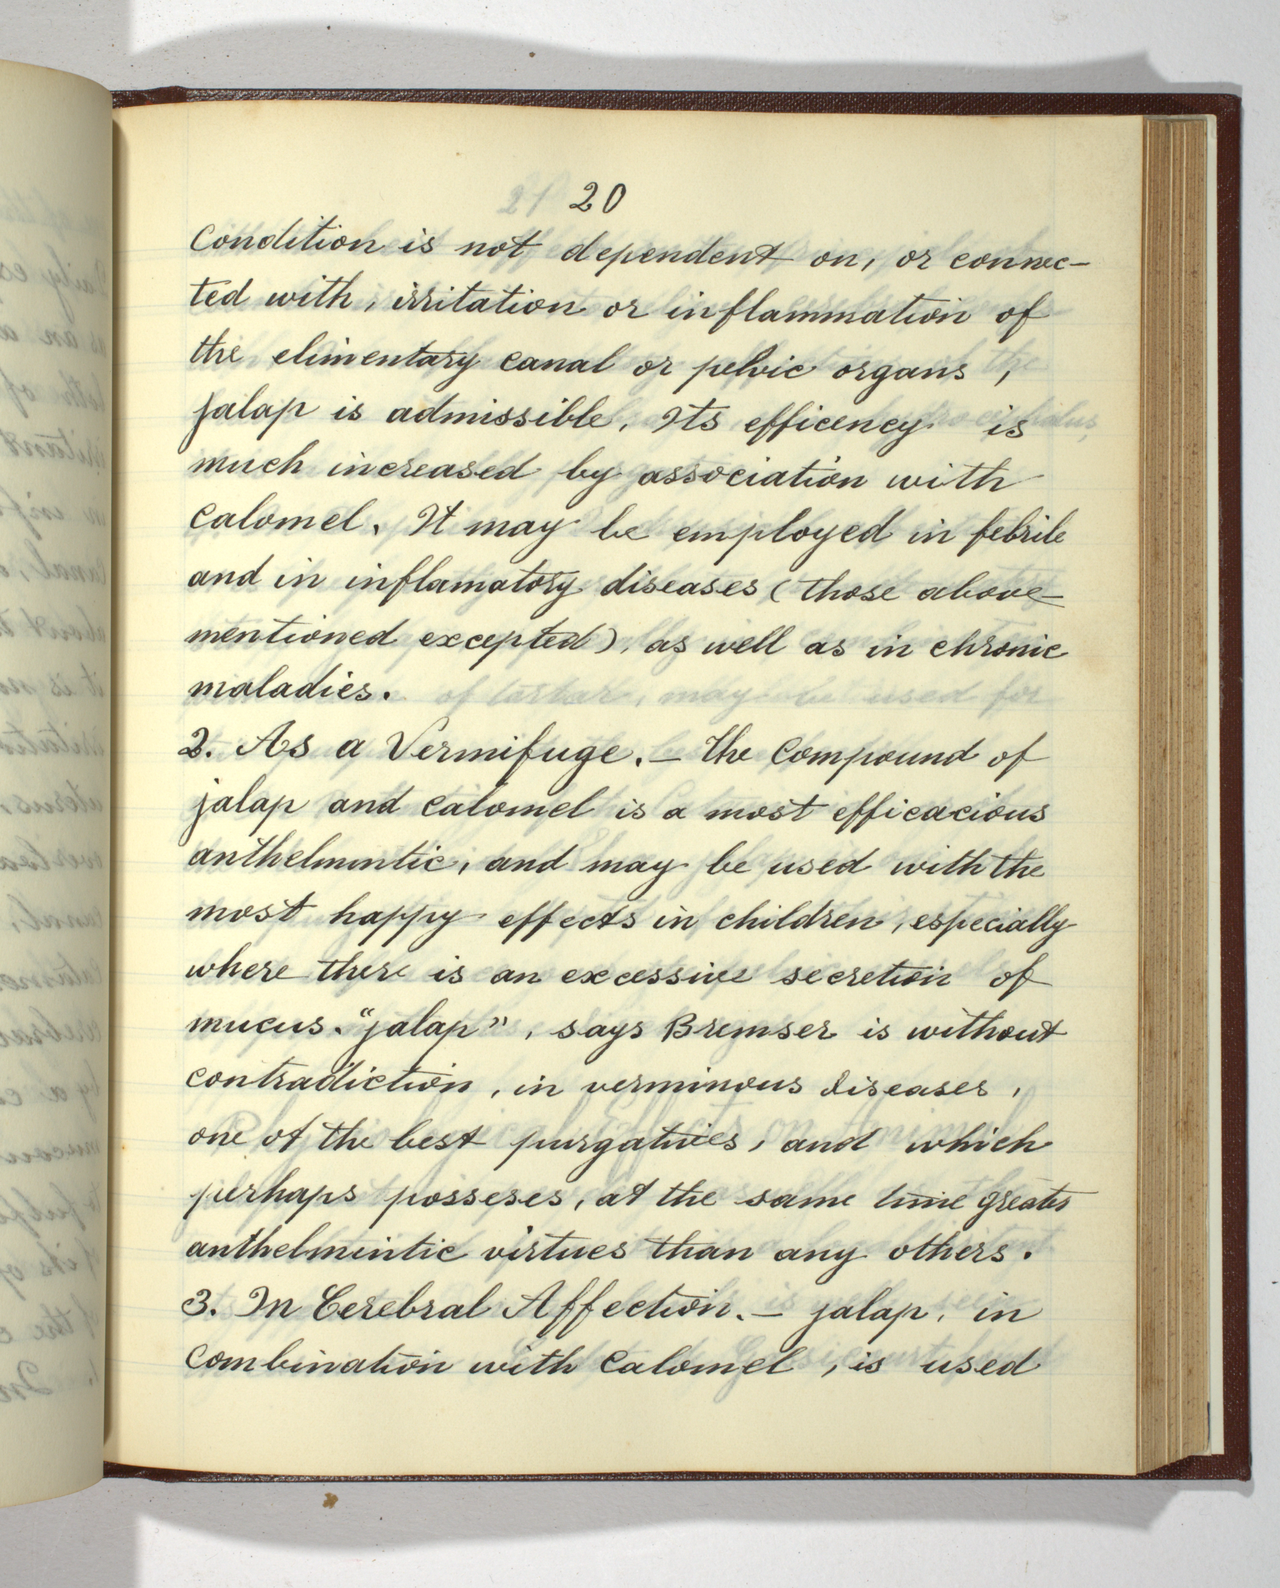 20
Condition is not dependent on, or connec-
ted with, irritation or inflammation of
the elimentary canal or pelvic organs,
jalap is admissible. Its efficency is
much increased by association with
Calomel. It may be employed in febrile
and in inflamatory diseases (those above
mentioned excepted), as well as in chronic
maladies.
2. As a Vermifuge.— The Compound of
jalap and calomel is a most efficacious
anthelmintic, and may be used with the
most happy effects in children, especially
where there is an excessive secretion of
mucus. "jalap", says Bremser is without
contradiction, in verminous diseases,
one of the best purgatives, and which
perhaps posseses, at the same time greater
anthelmintic virtues than any others.
3. In Cerebral Affection.— jalap, in
Combination with Calomel, is used